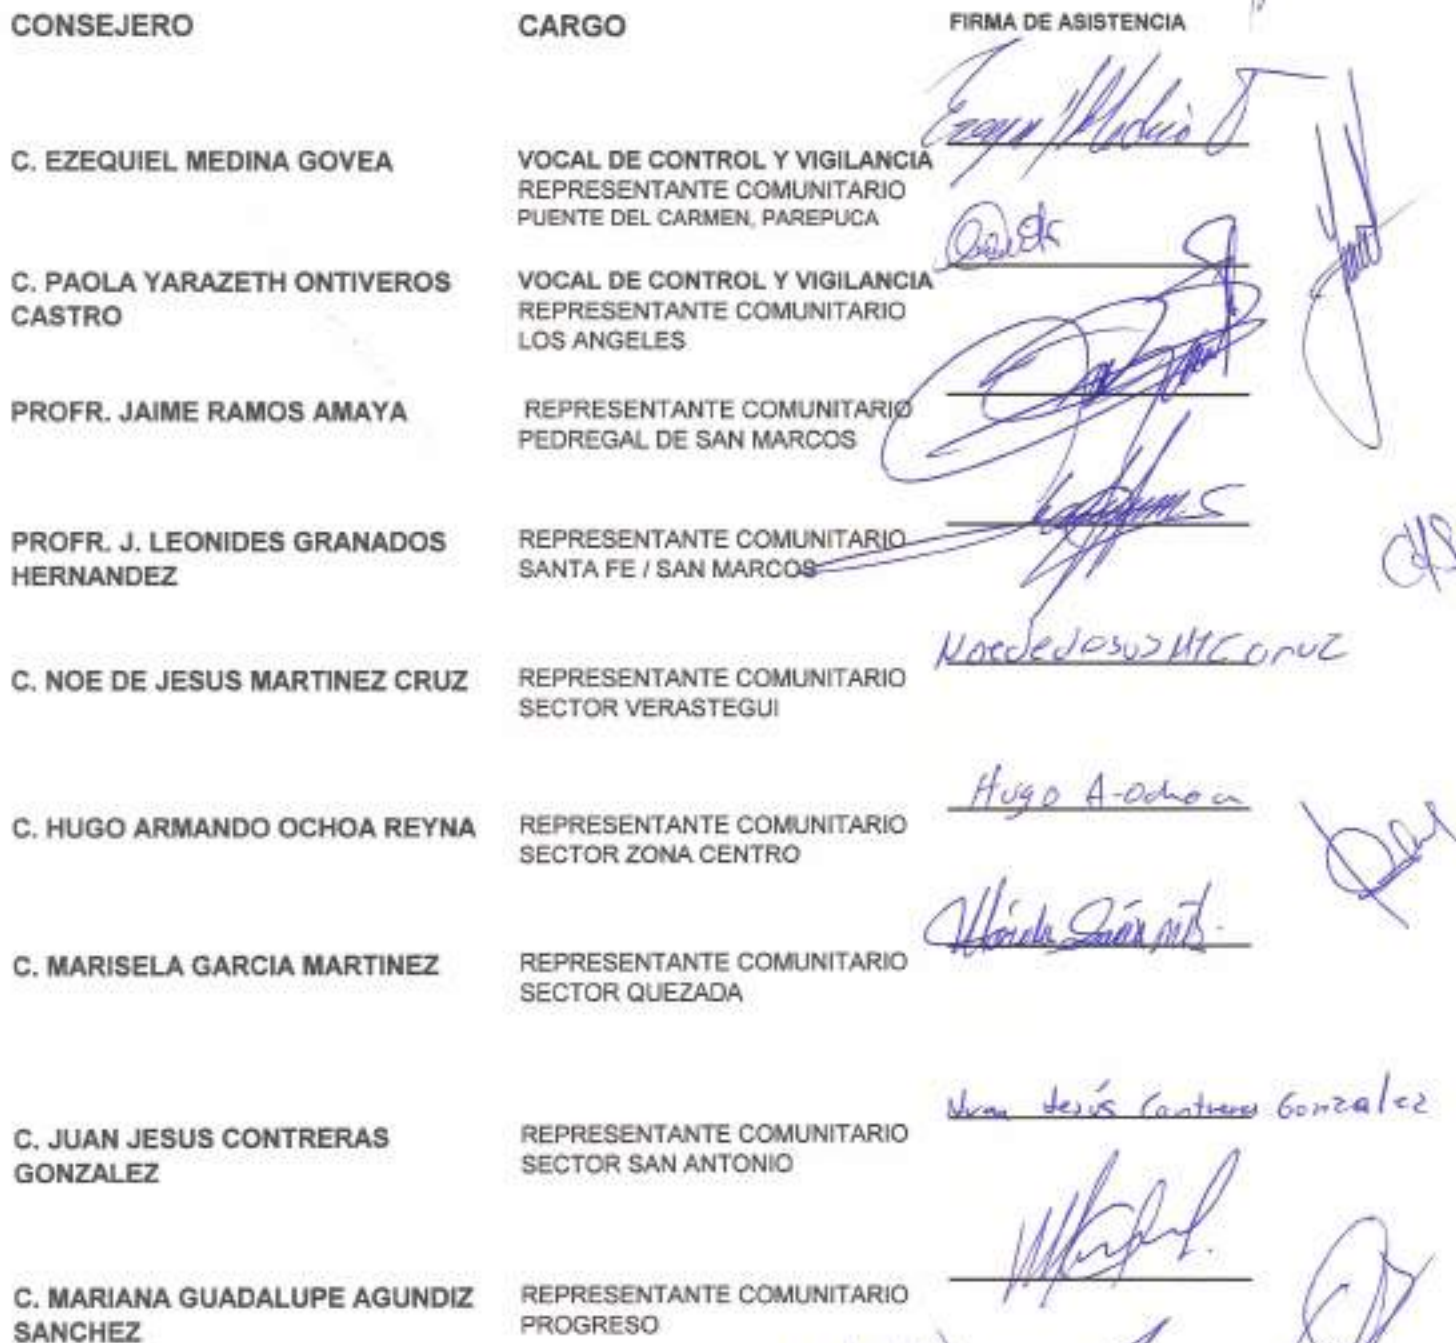 CONSEJERO CARGO FIRMA DE ASISTENCIA
C. EZEQUIEL MEDINA GOVEA VOCAL DE CONTROL Y VIGILANCIA
REPRESENTANTE COMUNITARIO
PUENTE DEL CARMEN, PAREPUCA
C. PAOLA YARAZETH ONTIVEROS VOCAL DE CONTROL Y VIGILANCIA
CASTRO REPRESENTANTE COMUNITARIO
LOS ANGELES
PROFR. JAIME RAMOS AMAYA REPRESENTANTE COMUNITARIO
PEDREGAL DE SAN MARCOS
PROFR. J. LEONIDES GRANADOS REPRESENTANTE COMUNITARIO
HERNANDEZ SANTA FE / SAN MARCOS
C. NOE DE JESUS MARTINEZ CRUZ REPRESENTANTE COMUNITARIO
SECTOR VERASTEGUI
Hugo A-Ochoa
C. HUGO ARMANDO OCHOA REYNA REPRESENTANTE COMUNITARIO
SECTOR ZONA CENTRO
C. MARISELA GARCIA MARTINEZ REPRESENTANTE COMUNITARIO
SECTOR QUEZADA
Jesús Contreras Gonzalez
C. JUAN JESUS CONTRERAS REPRESENTANTE COMUNITARIO
GONZALEZ SECTOR SAN ANTONIO
C. MARIANA GUADALUPE AGUNDIZ REPRESENTANTE COMUNITARIO
SANCHEZ PROGRESO